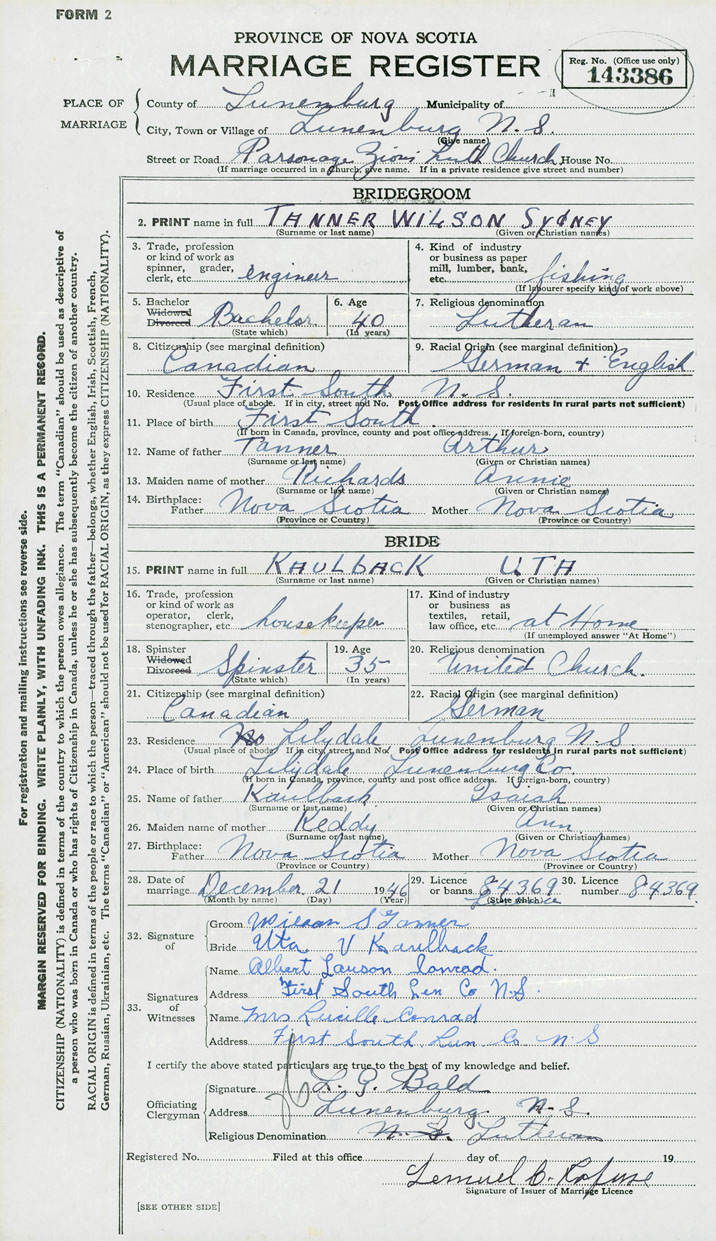 FORM 2
PROVINCE OF NOVA SCOTIA
MARRIAGE REGISTER
Reg. No. (Office use only)
143386
PLACE OF MARRIAGE
County of Lunenburg Municipality of
City, Town or Village of Lunenburg N.S.
(Give name)
Street or Road Parsonage Zion Luth Church House No.
(If marriage occurred in a church, give name. If in a private residence give street and number)
BRIDEGROOM
2. PRINT name in full TANNER WILSON SYDNEY
(Surname or last name) (Given or Christian names)
3. Trade, profession or kind of work as spinner, grader, clerk, etc. engineer
4. Kind of industry or business as paper mill, lumber, bank, etc. fishing
(If labourer specify kind of work above)
5. Bachelor Widowed Divorced Bachelor
(State which)
6. Age 40
(In years)
7. Religious denomination Lutheran
8. Citizenship (see marginal definition) Canadian
9. Racial Origin (see marginal definition) German + English
10. Residence First South N.S.
(Usual place of abode. If in city, street and No. Post Office address for residents in rural parts not sufficient)
11. Place of birth First South
(If born in Canada, province, county and post office address. If foreign-born, country)
12. Name of father Tanner Arthur
(Surname or last name) (Given or Christian names)
13. Maiden name of mother Richards Annie
(Surname or last name) (Given or Christian names)
14. Birthplace: Father Nova Scotia Mother Nova Scotia
(Province or Country) (Province or Country)
BRIDE
15. PRINT name in full KAULBACK UTA
(Surname or last name) (Given or Christian names)
16. Trade, profession or kind of work as operator, clerk, stenographer, etc. housekeeper
17. Kind of industry or business as textiles, retail, law office, etc. at Home
(If unemployed answer "At Home")
18. Spinster Widowed Divorced Spinster
(State which)
19. Age 35
(In years)
20. Religious denomination United Church.
21. Citizenship (see marginal definition) Canadian
22. Racial Origin (see marginal definition) German
23. Residence Lilydale Lunenburg N.S
(Usual place of abode. If in city, street and No. Post Office address for residents in rural parts not sufficient)
24. Place of birth Lilydale Lunenburg Co.
(If born in Canada, province, county and post office address. If foreign-born, country)
25. Name of father Kaulback Isaiah
(Surname or last name) (Given or Christian names)
26. Maiden name of mother Keddy Ann
(Surname or last name) (Given or Christian names)
27. Birthplace: Father Nova Scotia Mother Nova Scotia
(Province or Country) (Province or Country)
28. Date of marriage December 21 1946
(Month by name) (Day) (Year)
29. Licence or banns 84369
(State which)
30. Licence number 84369
32. Signature of
Groom Wilson S Tanner
Bride Uta V Kaulback
33. Signatures of Witnesses
Name Albert Lawson Conrad.
Address First South Lun Co N.S.
Name Mrs Lucille Conrad
Address First South, Lun Co N S
I certify the above stated particulars are true to the best of my knowledge and belief.
Officiating Clergyman
Signature L. G. Bald
Address Lunenburg. N.S.
Religious Denomination N.S. Lutheran
Registered No. Filed at this office day of 19
Lemuel C. Rofuse
Signature of Issuer of Marriage Licence
[SEE OTHER SIDE]
For registration and mailing instructions see reverse side.
MARGIN RESERVED FOR BINDING. WRITE PLAINLY, WITH UNFADING INK. THIS IS A PERMANENT RECORD.
CITIZENSHIP (NATIONALITY) is defined in terms of the country to which the person owes allegiance. The term "Canadian" should be used as descriptive of
a person who was born in Canada or who has rights of Citizenship in Canada, unless he or she has subsequently become the citizen of another country.
RACIAL ORIGIN is defined in terms of the people or race to which the person—traced through the father—belongs, whether English, Irish, Scottish, French,
German, Russian, Ukrainian, etc. The terms "Canadian" or "American" should not be used for RACIAL ORIGIN, as they express CITIZENSHIP (NATIONALITY).